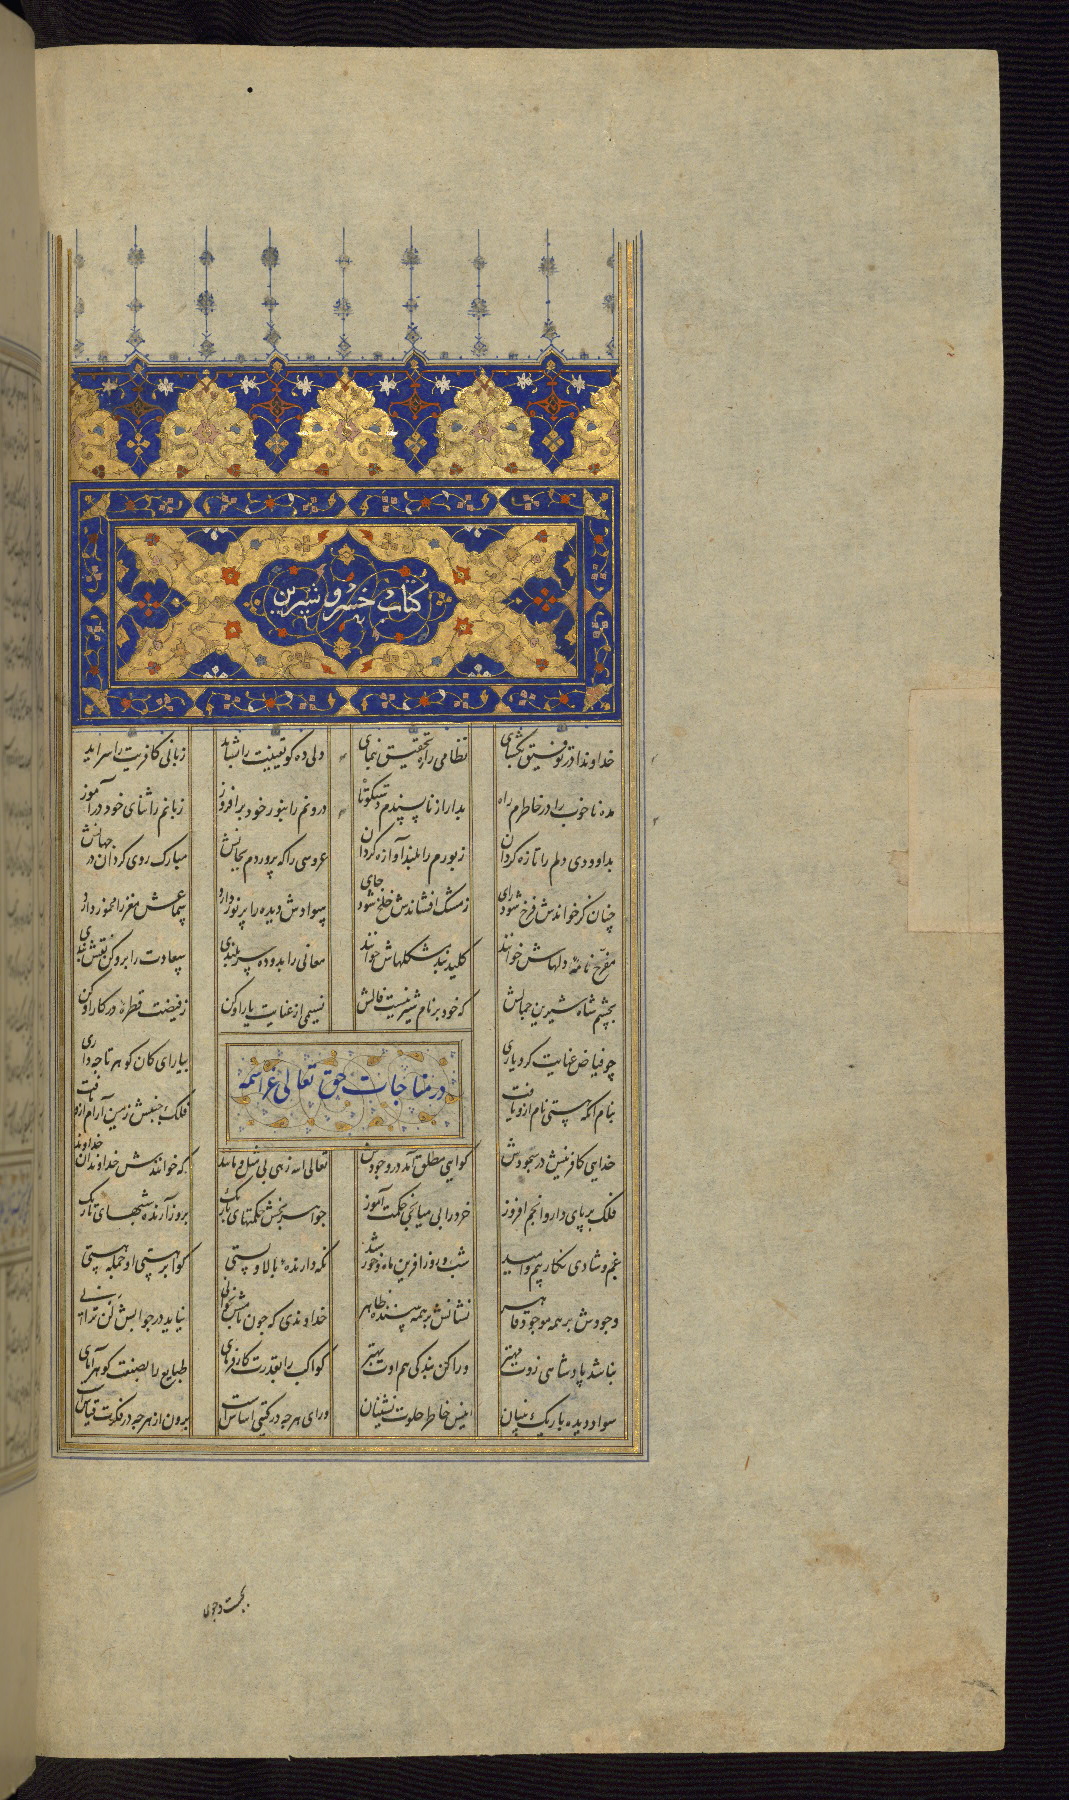 کتاب خسرو و شیرین
خداوندا در توفیق بکشای نظامی را ره تحقیق بنمای دلی ده کو یقینت را بشاید زبانی کافرینت را سراید
مده ناخوب را در خاطرم راه بدار از ناپسندم دست کوتاه درونم را بنور خود برافروز زبانم را ثنای خود درآموز
بداوودی دلم را تازه کردان زبورم را بلند آوازه کردان عروسی را که پروردم بجانش مبارک روی کردان در جهانش
چنان کز خواندنش فرخ شود رای ز مشک افشاندنش خلخ شود جای سوادش دیده را پرنور دارد سماعش مغز را معمور دارد
مفرح نامهٔ دلهاش خوانند کلید بند مشکلهاش خوانند معانی را بدو ده سربلندی سعادت را برو کن نقش بندی
بچشم شاه شیرین جمالش که خود بر نام شیرینست فالش نسیمی از عنایت یار او کن ز فیضت قطرهٔ در کار او کن
چو فیاض عنایت کرد یاری بیارای کان کوهر تا چه داری
در مناجات حق تعالی عز اسمه
بنام آنکه هستی نام ازو یافت فلک جنبش زمین آرام ازو یافت
خدایی کافرینش در سجودش کواهی مطلق آمد در وجودش تعالی الله زهی بی مثل و مانند که خوانندش خداوندان خداوند
فلک بر پای دار و انجم افروز خرد را بی میانجی حکمت آموز جواهر بخش حکمتهای باریک بروز آرنده شبهای تاریک
غم و شادی نکار و بیم و امید شب و روز آفرین و ماه و خورشید نکه دارندهٔ بالا و پستی کوا بر هستی او جمله هستی
وجودش بر همه موجود قاهر نشانش بر همه بیننده ظاهر خداوندی که چون نامش بخوانی نیاید در جوابش لن ترانی
نباشد پادشاهی زوت مهتر ورا کن بندکی هم اوت بهتر کواکب را بقدرت کارفرمای طبایع را بصنعت کوهرآرای
سواد دیدهٔ باریک بینان انیس خاطر خلوت نشینان ورای هرچه در کیتی اساسست برون از هرچه در فکرت قیاسست
بجست و جوی